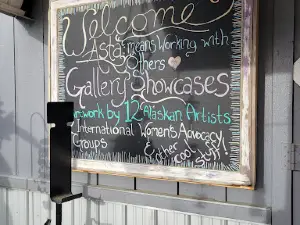 Welcome
Asta means Working with
Others
Gallery Showcases
work by 12 Alaskan Artists
International Women's Advocacy
Groups & other cool stuff!